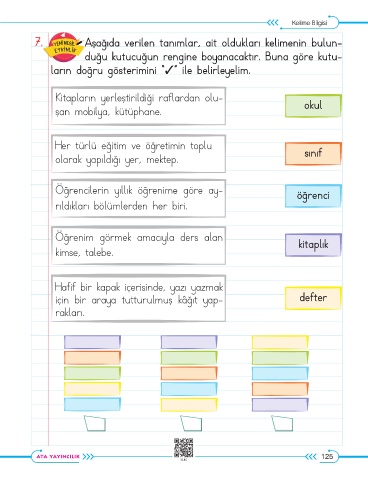 Kelime Bilgisi
7. YENİ NESİL ETKİNLİK Aşağıda verilen tanımlar, ait oldukları kelimenin bulun-
duğu kutucuğun rengine boyanacaktır. Buna göre kutu-
ların doğru gösterimini "✓" ile belirleyelim.
Kitapların yerleştirildiği raflardan olu-
şan mobilya, kütüphane.
okul
Her türlü eğitim ve öğretimin toplu
olarak yapıldığı yer, mektep.
sınıf
Öğrencilerin yıllık öğrenime göre ay-
rıldıkları bölümlerden her biri.
öğrenci
Öğrenim görmek amacıyla ders alan
kimse, talebe.
kitaplık
Hafif bir kapak içerisinde, yazı yazmak
için bir araya tutturulmuş kâğıt yap-
rakları.
defter
ATA YAYINCILIK
125